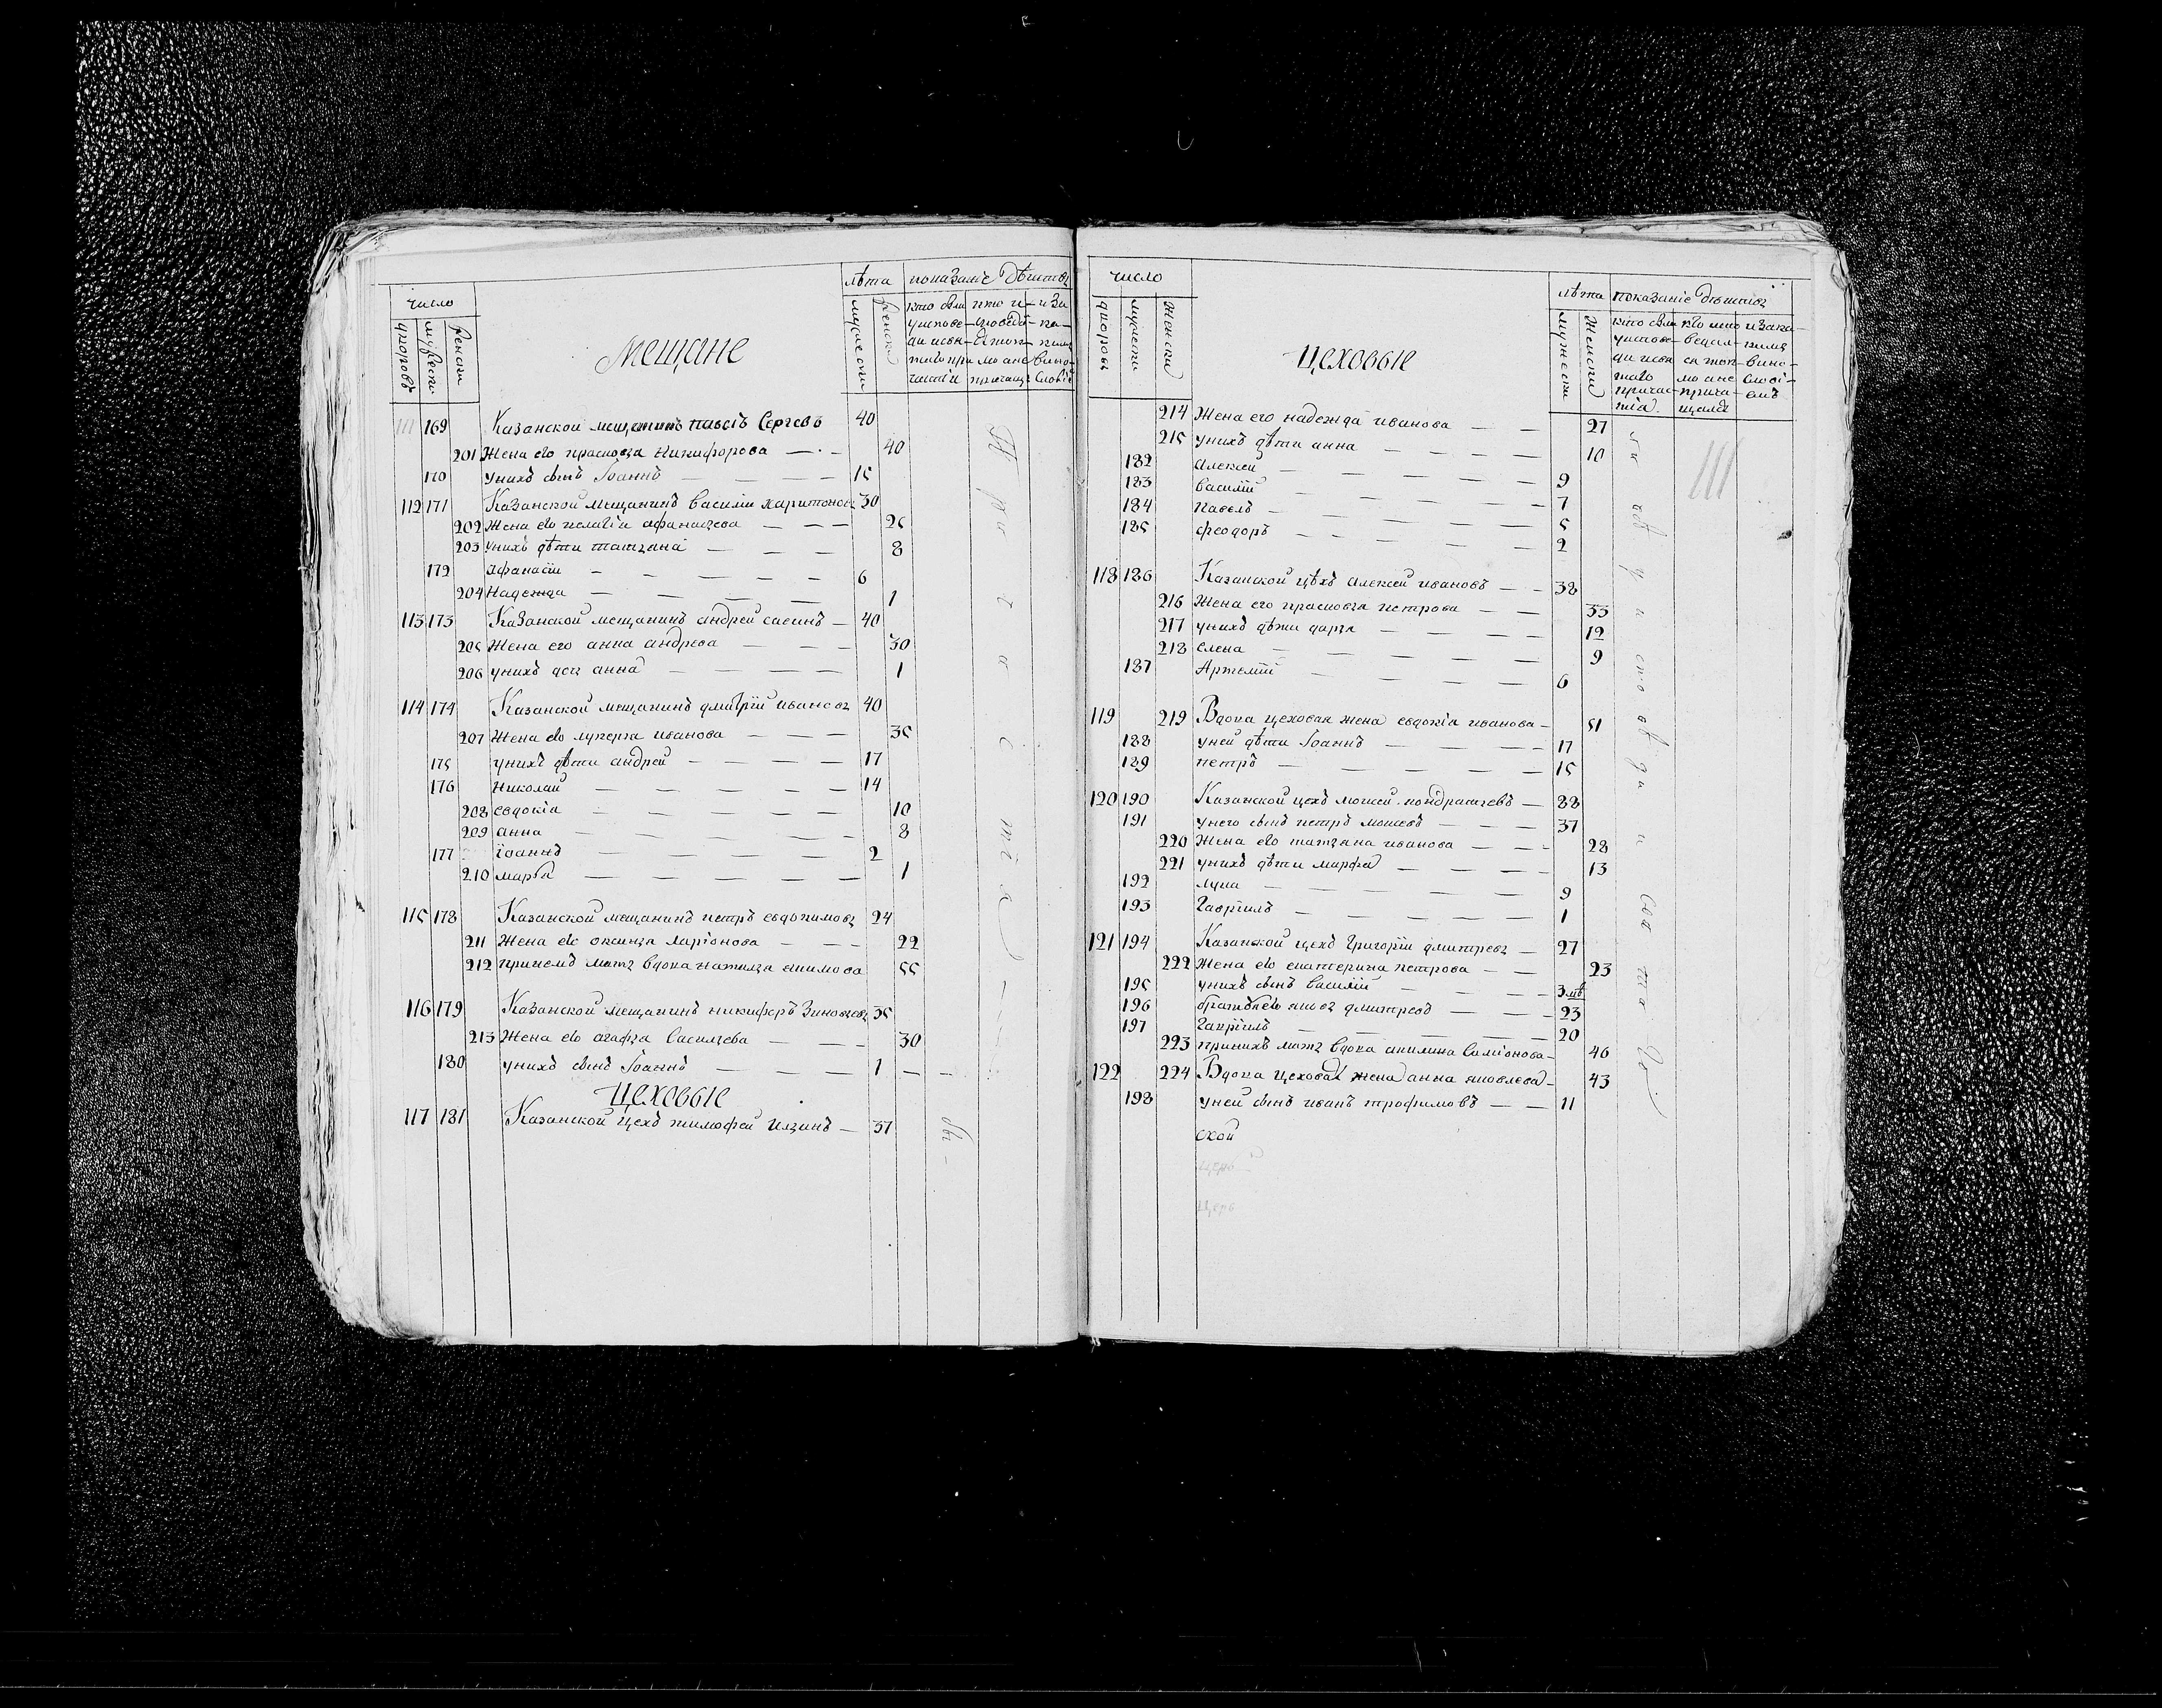 число
лѣта
показаніе дѣиствъ
дворовъ
мужеска
женска
Мещане
мужескаго
женска
111 169 Казанской мещанинъ павелъ Сергѣевъ 40
201 Жена его прасковья Никифорова 40
170 унихъ сынъ Іоаннъ 15
112 171 Казанской мещанинъ василіи харитоновъ 30
202 Жена его пелагія афанасьева 26
203 унихъ дѣти татьяна 8
172 афанасіи 6
204 Надежда 1
113 173 Казанской мещанинъ андреи савинъ 40
205 Жена его анна андреева 30
206 унихъ дочь анна 1
114 174 Казанской мещанинъ дмитріи ивановъ 40
207 Жена его лукерья иванова 35
175 унихъ дѣти андреи 17
176 николаи 14
208 евдокія 10
209 анна 8
177 іоаннъ 2
210 марѳа 1
115 178 Казанской мещанинъ петръ евдокимовъ 24
211 Жена его оксинья ларіонова 22
212 принемъ мать вдова наталья акимова 55
116 179 Казанской мещанинъ никифоръ Зиновьевъ 35
213 Жена его агафья васильева 30
180 унихъ сынъ Іоаннъ 1
Цеховые
117 181 Казанской цехъ тимофеи ильинъ 37
причастія
бы-
число
лѣта
показаніе дѣиствъ
дворовъ
мужеска
женски
Цеховые
мужески
женски
214 Жена его надежда иванова 27
215 унихъ дѣти анна 10
182 алексеи 9
183 василіи 7
184 павелъ 5
185 феодоръ 2
118 186 Казанской цѣхъ алексеи ивановъ 38
216 Жена его прасковья петрова 33
217 унихъ дѣти дарья 12
218 елена 9
187 Артеміи 6
119 219 Вдова цеховая жена евдокія иванова 51
188 унеи дѣти Іоаннъ 17
189 петръ 15
120 190 Казанской цехъ моисеи кондратьевъ 88
191 унего сынъ петръ моисеевъ 37
220 Жена его татьяна иванова 28
221 унихъ дѣти марфа 13
192 лука 9
193 Гавріилъ 1
121 194 Казанской цехъ Григоріи дмитреевъ 27
222 Жена его екатерина петрова 23
195 унихъ сынъ василіи 3
196 братья его яковъ дмитреевъ 23
197 Гавріилъ 20
223 принихъ мать вдова акилина симіонова 46
122 224 Вдова Цеховая жена анна яковлева 43
198 унеи сынъ иванъ трофимовъ 11
скои